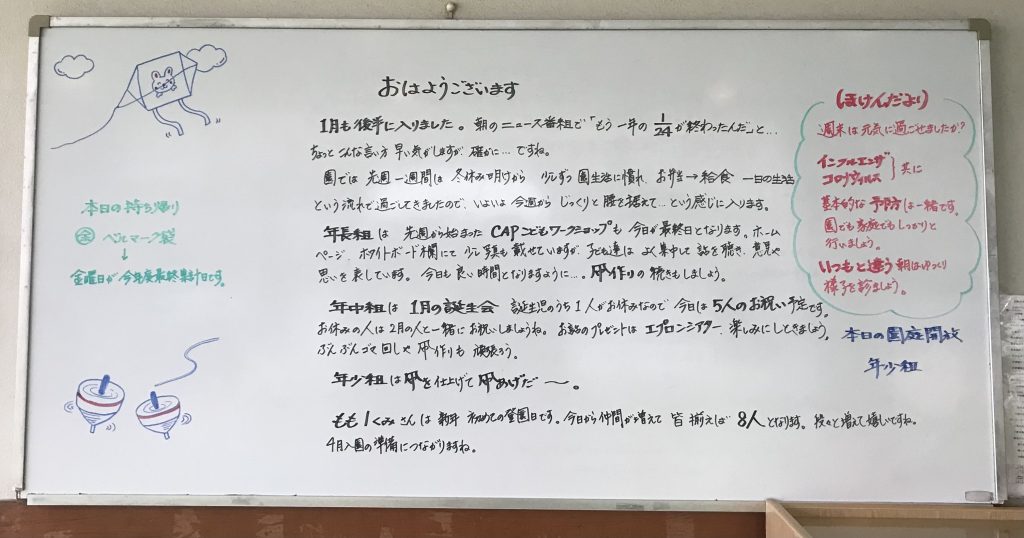 おはようございます
1月も後半に入りました。朝のニュース番組で「もう一年の1/24が終わったんだ」と…
ちょっとこんな言い方早い気がしますが確かに…ですね。
園では先週一週間は冬休み明けから少しずつ園生活に慣れ、お弁当→給食 一日の生活
という流れで過ごしてきましたので、いよいよ今週からじっくりと腰を据えて…という感じに入ります。
年長組は先週から始まったCAPこどもワークショップも今日が最終日となります。ホーム
ページ、ホワイトボード横欄にて少し写真も載せていますが、子ども達はよく集中して話を聴き、意見や
思いを表しています。今日も良い時間となりますように…。凧作りの続きもしましょう。
年中組は1月の誕生会 誕生児のうち1人がお休みなので今日は5人のお祝い予定です。
お休みの人は2月の人と一緒にお祝いしましょうね。お話のプレゼントはエプロンシアター、楽しみにしときましょう。
ぶんぶんゴマ回しや凧作りも頑張ろう。
年少組は凧を仕上げて凧あげだ〜。
もも1くみさんは新年初めての登園日です。今日から仲間が増えて皆揃えば8人となります。段々と増えて嬉しいですね。
4月入園の準備につながりますね。
本日の持ち帰り
金 ベルマーク袋
↓
金曜日が今年度最終集計日です。
ほけんだより
週末は元気に過ごせましたか?
インフルエンザ
コロナウィルス } 共に
基本的な予防は一緒です。
園でも家庭でもしっかりと
行いましょう。
いつもと違う朝はゆっくり
様子を診ましょう。
本日の園庭開放
年少組